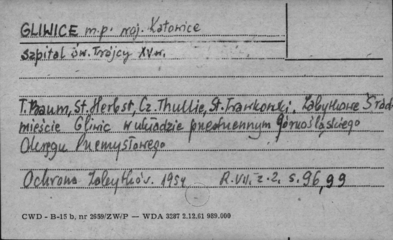 GLIWICE m.p. woj. Katowice
Szpital św. Trójcy XV w.
T. Baum, St. Herbst, Cz. Thullie, St. Zabytkowe Śród
mieście Gliwic w układzie przestrzennym Górnośląskiego
Okręgu Przemysłowego
Ochrona Zabytków. 1954 R. VII. z. 2. s. 96, 99
CWD - B-15 b, nr 2658/ZW/P — WDA 3287 2.12.61 989.000